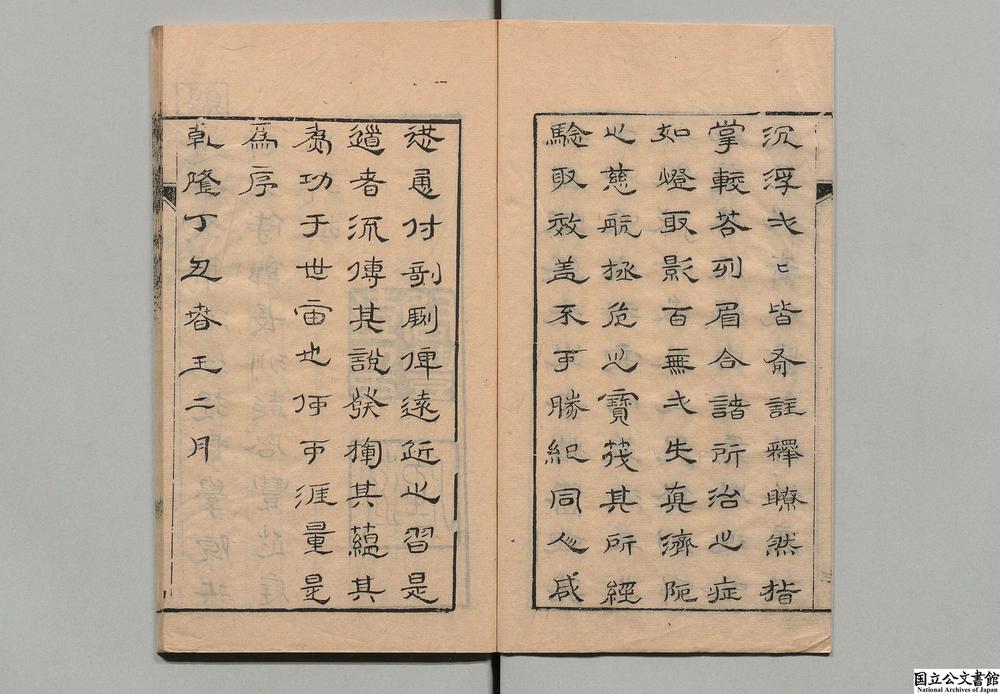 沉浮弌〻皆有註釋瞭然指
掌較若列眉合諸所治之症
如燈取影百無弌失真濟阨
之慈航拯危之寶筏其所經
驗取效盖不可勝紀同人咸
慫恿付剞劂俾遠近之習是
道者流傳其說發其蘊其
為功于世宙也何可涯量是
為序
乾隆丁丑春王二月
国立公文書館
National Archives of Japan